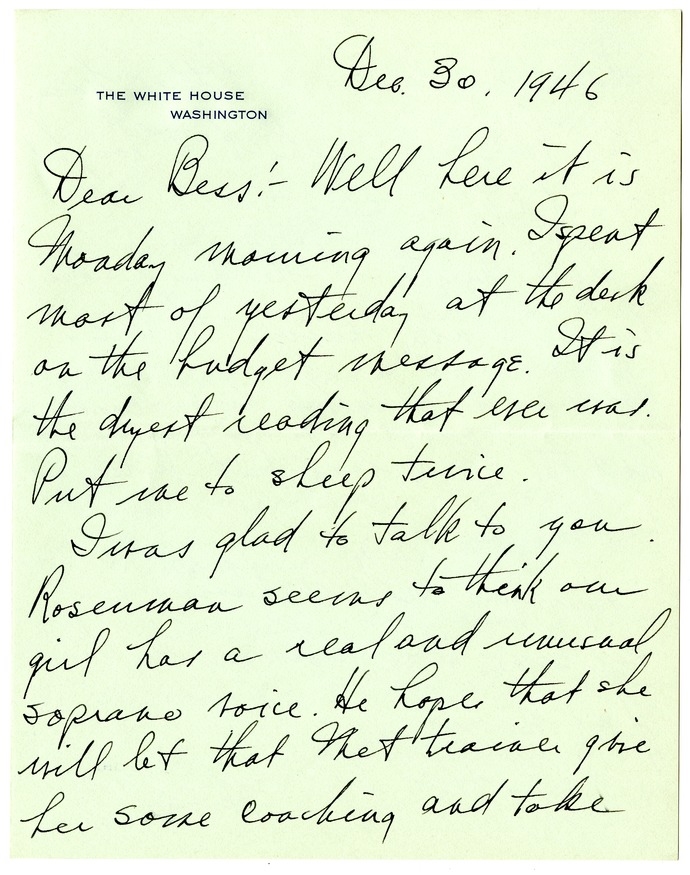 Dec. 30, 1946
THE WHITE HOUSE
WASHINGTON
Dear Bess:- Well here it is
Monday morning again. I spent
most of yesterday at the desk
on the budget message. It is
the dryest reading that ever was.
Put me to sleep twice.
I was glad to talk to you.
Rosenman seems to think our
girl has a real and unusual
soprano voice. He hopes that she
will let that Met trainer give
her some coaching and take